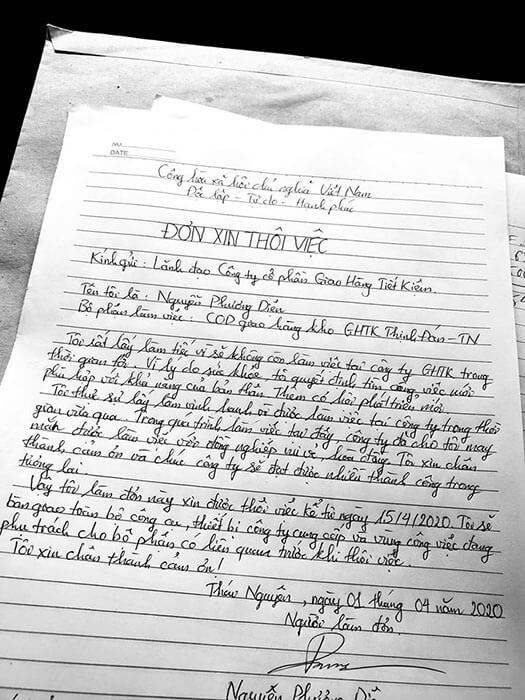 NO.
DATE
Cộng hòa xã hội chủ nghĩa Việt Nam
Độc lập - Tự do - Hạnh phúc
ĐƠN XIN THÔI VIỆC
Kính gửi: Lãnh đạo Công ty cổ phần Giao Hàng Tiết Kiệm.
Tên tôi là: Nguyễn Phương Diễn
Bộ phận làm việc: COD giao hàng kho GHTK Thịnh Đán - TN
Tôi rất lấy làm tiếc vì sẽ không còn làm việc tại công ty GHTK trong
thời gian tới. Vì lý do sức khỏe, tôi quyết định tìm công việc mới
phù hợp với khả năng của bản thân. Thêm cơ hội phát triển mới.
Tôi thực sự lấy làm vinh hạnh vì được làm việc tại công ty trong thời
gian vừa qua. Trong quá trình làm việc tại đây, công ty đã cho tôi may
mắn được làm việc với đồng nghiệp vui vẻ, hòa đồng. Tôi xin chân
thành cảm ơn và chúc công ty sẽ đạt được nhiều thành công trong
tương lai.
Vậy tôi làm đơn này xin được thôi việc kể từ ngày 15/4/2020. Tôi sẽ
bàn giao toàn bộ công cụ, thiết bị công ty cung cấp và vùng công việc đang
phụ trách cho bộ phận có liên quan trước khi thôi việc.
Tôi xin chân thành cảm ơn!
Thái Nguyên, ngày 01 tháng 04 năm 2020
Người làm đơn.
Nguyễn Phương